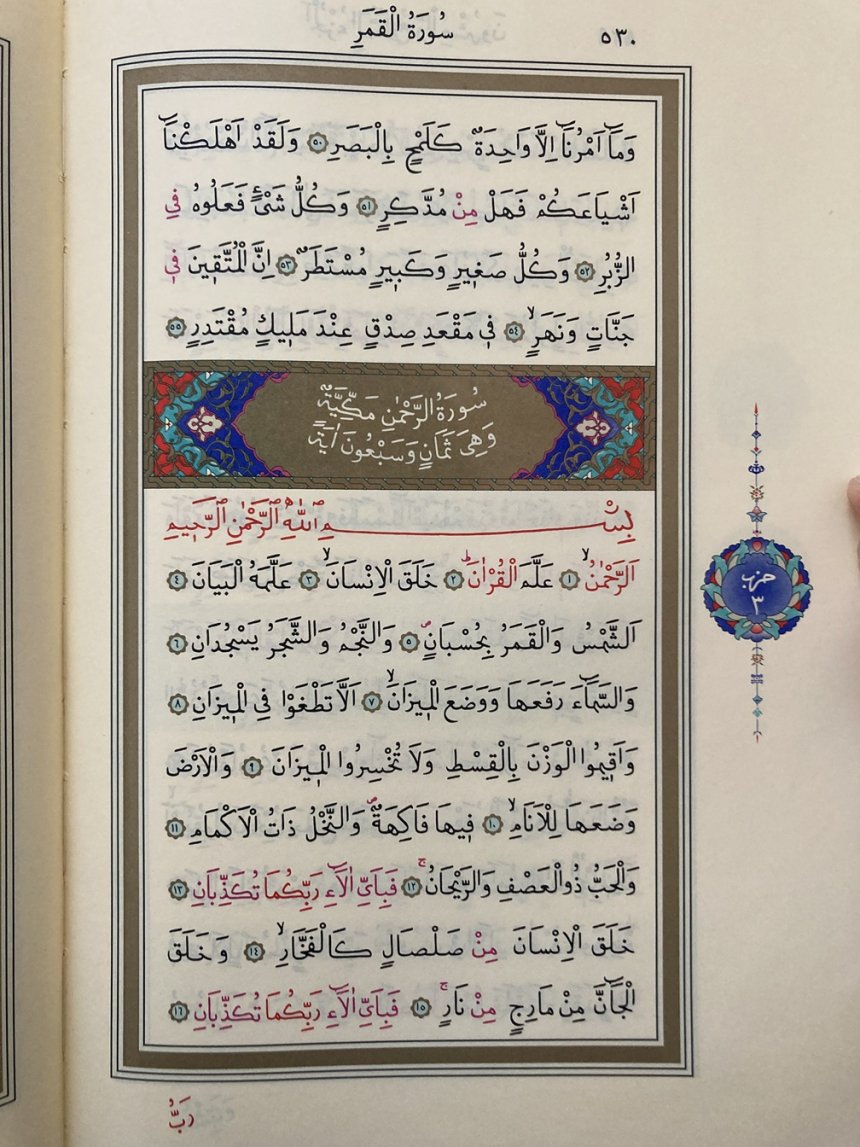 سُورَةُ الْقَمَرِ
٥٣٠
وَمَٓا اَمْرُنَٓا اِلَّا وَاحِدَةٌ كَلَمْحٍ بِالْبَصَرِ ﴿٥٠﴾ وَلَقَدْ اَهْلَكْنَٓا
اَشْيَاعَكُمْ فَهَلْ مِنْ مُدَّكِرٍ ﴿٥١﴾ وَكُلُّ شَيْءٍ فَعَلُوهُ فِي
الزُّبُرِ ﴿٥٢﴾ وَكُلُّ صَغ۪يرٍ وَكَب۪يرٍ مُسْتَطَرٌ ﴿٥٣﴾ اِنَّ الْمُتَّق۪ينَ ف۪ي
جَنَّاتٍ وَنَهَرٍۙ ﴿٥٤﴾ ف۪ي مَقْعَدِ صِدْقٍ عِنْدَ مَل۪يكٍ مُقْتَدِرٍ ﴿٥٥﴾
سُورَةُ الرَّحْمٰنِ مَكِّيَّةٌ
وَهِيَ ثَمَانٍ وَسَبْعُونَ اٰيَةً
بِسْمِ اللّٰهِ الرَّحْمٰنِ الرَّح۪يمِ
اَلرَّحْمٰنُۙ ﴿١﴾ عَلَّمَ الْقُرْاٰنَۜ ﴿٢﴾ خَلَقَ الْاِنْسَانَۙ ﴿٣﴾ عَلَّمَهُ الْبَيَانَ ﴿٤﴾
اَلشَّمْسُ وَالْقَمَرُ بِحُسْبَانٍۖ ﴿٥﴾ وَالنَّجْمُ وَالشَّجَرُ يَسْجُدَانِ ﴿٦﴾
وَالسَّمَٓاءَ رَفَعَهَا وَوَضَعَ الْم۪يزَانَۙ ﴿٧﴾ اَلَّا تَطْغَوْا فِي الْم۪يزَانِ ﴿٨﴾
وَاَق۪يمُوا الْوَزْنَ بِالْقِسْطِ وَلَا تُخْسِرُوا الْم۪يزَانَ ﴿٩﴾ وَالْاَرْضَ
وَضَعَهَا لِلْاَنَامِۙ ﴿١٠﴾ ف۪يهَا فَاكِهَةٌۖ وَالنَّخْلُ ذَاتُ الْاَكْمَامِ ﴿١١﴾
وَالْحَبُّ ذُو الْعَصْفِ وَالرَّيْحَانُۚ ﴿١٢﴾ فَبِاَيِّ اٰلَٓاءِ رَبِّكُمَا تُكَذِّبَانِ ﴿١٣﴾
خَلَقَ الْاِنْسَانَ مِنْ صَلْصَالٍ كَالْفَخَّارِۙ ﴿١٤﴾ وَخَلَقَ
الْجَٓانَّ مِنْ مَارِجٍ مِنْ نَارٍۚ ﴿١٥﴾ فَبِاَيِّ اٰلَٓاءِ رَبِّكُمَا تُكَذِّبَانِ ﴿١٦﴾
حزب
٣
رَبُّ